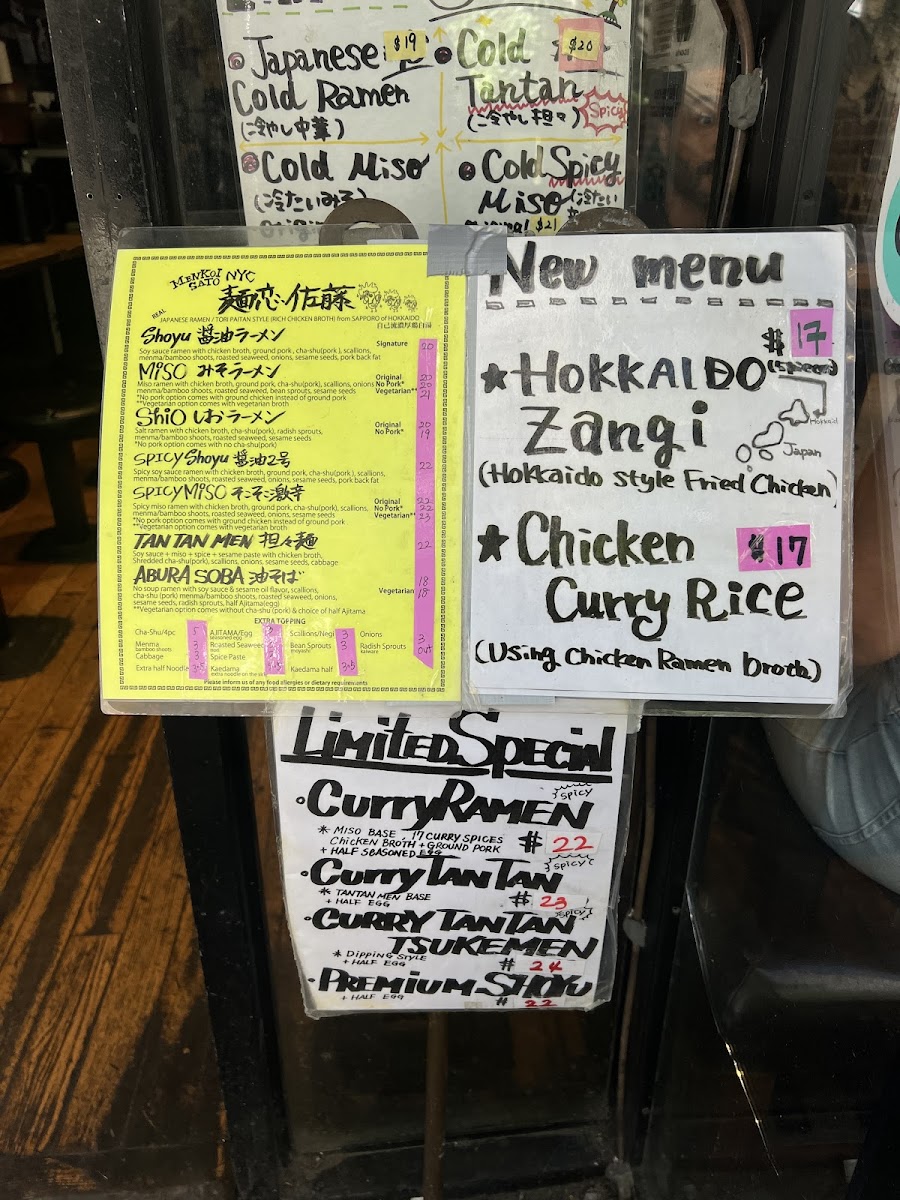 Japanese $19
Cold Ramen
(冷やし中華)
Cold $20
Tantan
(冷やし担々) Spicy
Cold Miso
(冷たいみそ)
Cold Spicy
Miso (冷たい
$21
MENKOI SATO NYC
麺恋佐藤
REAL JAPANESE RAMEN / TORI PAITAN STYLE (RICH CHICKEN BROTH) from SAPPORO OF HOKKAIDO
Shoyu 醤油ラーメン Signature 20
Soy sauce ramen with chicken broth, ground pork, cha-shu(pork), scallions,
menma/bamboo shoots, roasted seaweed, onions, sesame seeds, pork back fat
MISO みそラーメン
Miso ramen with chicken broth, ground pork, cha-shu(pork), scallions, onions Original 20
menma/bamboo shoots, roasted seaweed, bean sprouts, sesame seeds No Pork* 20
*No pork option comes with ground chicken instead of ground pork Vegetarian** 21
**Vegetarian option comes with vegetarian broth
Shio しおラーメン
Salt ramen with chicken broth, cha-shu(pork), radish sprouts, Original 20
menma/bamboo shoots, roasted seaweed, sesame seeds No Pork* 19
*No pork option comes with no cha-shu(pork)
SPICY Shoyu 醤油2号 22
Spicy soy sauce ramen with chicken broth, ground pork, cha-shu(pork), scallions,
menma/bamboo shoots, roasted seaweed, onions, sesame seeds, pork back fat
SPICY MISO そこそこ激辛
Spicy miso ramen with chicken broth, ground pork, cha-shu(pork), scallions, Original 22
menma/bamboo shoots, roasted seaweed, onions, sesame seeds No Pork* 22
*No pork option comes with ground chicken instead of ground pork Vegetarian** 23
**Vegetarian option comes with vegetarian broth
TAN TAN MEN 担々麺 22
Soy sauce + miso + spice + sesame paste with chicken broth,
Shredded cha-shu(pork), scallions, onions, sesame seeds, cabbage
ABURA SOBA 油そば 18
No soup ramen with soy sauce & sesame oil flavor, scallions, Vegetarian 18
cha-shu (pork) menma/bamboo shoots, roasted seaweed, onions,
sesame seeds, radish sprouts, half Ajitama(egg)
*Vegetarian option comes without cha-shu (pork) & choice of half Ajitama
EXTRA TOPPING
Cha-Shu/4pc 5 AJITAMA/Egg Scallions/Negi 3 Onions 3
Menma Roasted Seaweed Bean Sprouts 3 Radish Sprouts out
bamboo shoots
Cabbage 3 Spice Paste
Extra half Noodle 3.5 Kaedama Kaedama half 3.5
Please inform us of any food allergies or dietary requirements
New menu
$17
★HOKKAIDO
Zangi
Hokkaido
Japan
(Hokkaido style Fried Chicken)
★Chicken $17
Curry Rice
(Using Chicken Ramen broth)
LIMITED SPECIAL
CURRY RAMEN SPICY
* MISO BASE, 17 CURRY SPICES
CHICKEN BROTH + GROUND PORK $22
+ HALF SEASONED EGG
CURRY TANTAN SPICY
* TANTAN MEN BASE
+ HALF EGG $23
CURRY TANTAN SPICY
TSUKEMEN
* DIPPING STYLE
+ HALF EGG $24
PREMIUM SHOYU
+ HALF EGG $22